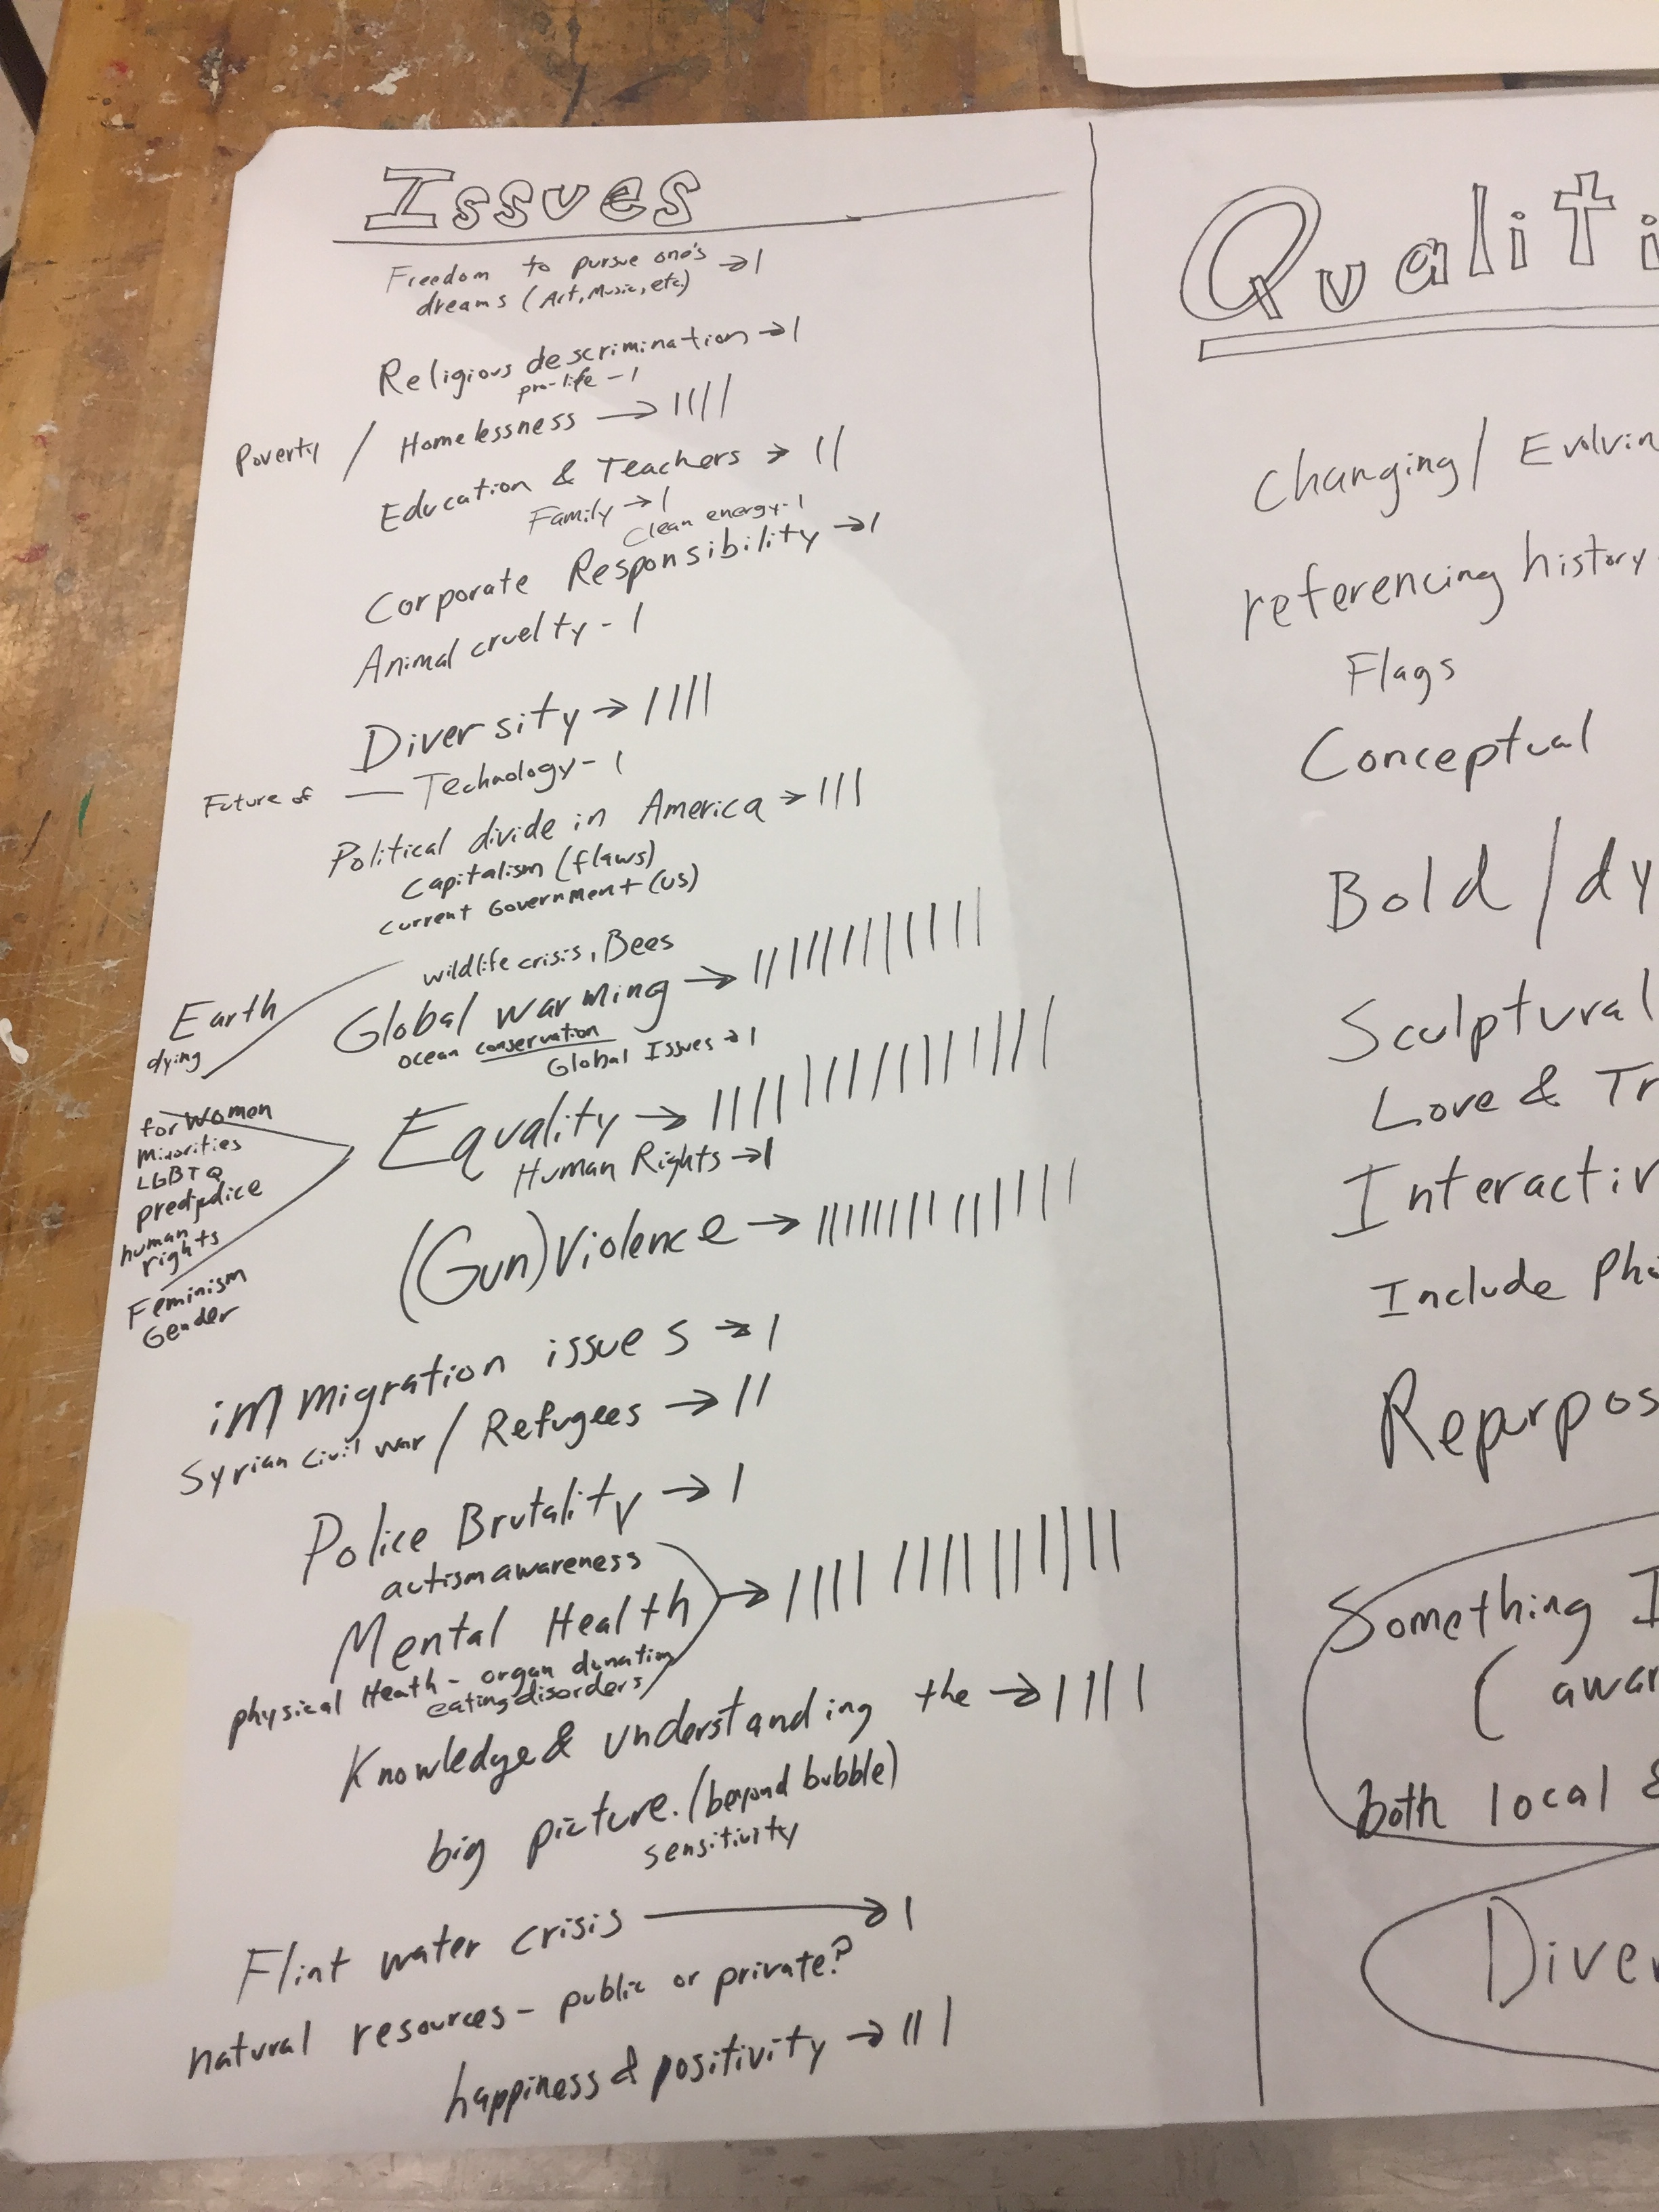 Issues
Freedom to pursue one's → |
dreams (Art, Music, etc)
Religious descrimination → |
pro-life - |
Poverty / Homelessness → ||||
Education & Teachers → ||
Family → |
Clean energy - |
Corporate Responsibility → |
Animal cruelty - |
Diversity → ||||
Future of — Technology - |
Political divide in America → |||
Capitalism (flaws)
current Government (US)
wildlife crisis, Bees
Earth
dying
Global warming →
ocean conservation
Global Issues → |
for Women
minorities
LGBTQ
predjudice
human
rights
Feminism
Gender
Equality →
Human Rights → |
(Gun) Violence →
immigration issues → |
Syrian civil war / Refugees → ||
Police Brutality → |
autism awareness
Mental Health →
physical Heath - organ donation
eating disorders
Knowledge & understanding the → ||||
big picture. (beyond bubble)
sensitivity
Flint water crisis → |
natural resources - public or private?
happiness & positivity → |||
Qualiti
Changing / Evolvin
referencing history
Flags
Conceptual
Bold / dy
Sculptural
Love & Tr
Interactiv
Include Pho
Repurpos
Something I
( awar
both local &
Diver